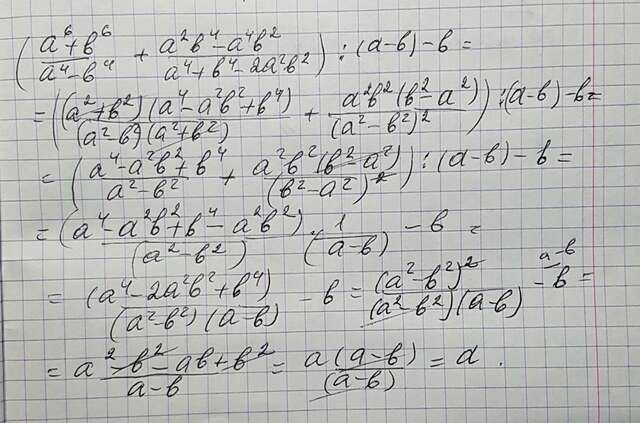 (a⁶+b⁶/a⁴-b⁴ + a²b⁴-a⁴b²/a⁴+b⁴-2a²b²) : (a-b)-b =
= ((a²+b²)(a⁴-a²b²+b⁴)/(a²-b²)(a²+b²) + a²b²(b²-a²)/(a²-b²)²) : (a-b)-b =
= (a⁴-a²b²+b⁴/a²-b² + a²b²(b²-a²)/(b²-a²)²) : (a-b)-b =
= (a⁴-a²b²+b⁴-a²b²)/(a²-b²) · 1/(a-b) -b =
= (a⁴-2a²b²+b⁴)/(a²-b²)(a-b) -b = (a²-b²)²/(a²-b²)(a-b) -b a-b =
= a²-b²-ab+b²/a-b = a(a-b)/(a-b) = a.